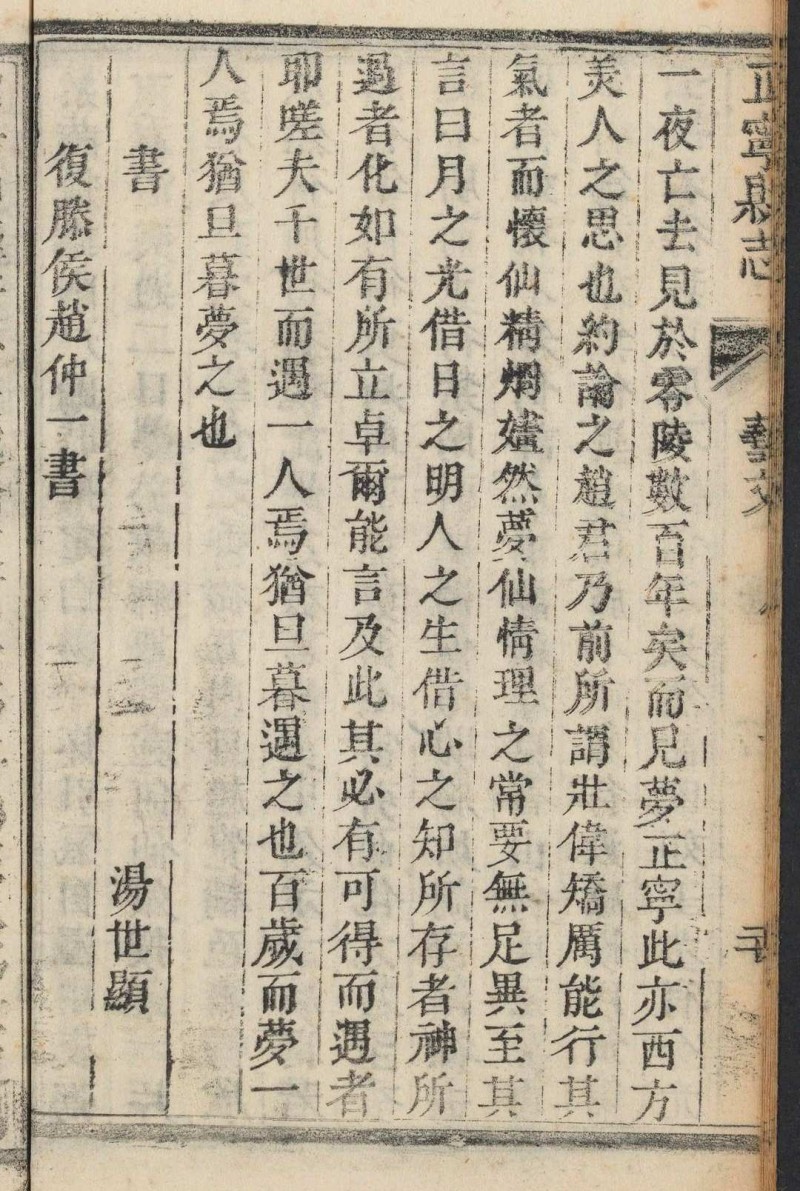 正寧縣志
藝文
一夜亡去見於零陵數百年矣而見夢正寧此亦西方
美人之思也約論之趙君乃前所謂壯偉矯厲能行其
氣者而懷仙精烱㜯然夢仙情理之常要無足異至其
言曰月之光借日之明人之生借心之知所存者神所
過者化如有所立卓爾能言及此其必有可得而遇者
耶嗟夫千世而遇一人焉猶旦暮遇之也百歲而夢一
人焉猶旦暮夢之也
書
湯世顯
復滕侯趙仲一書